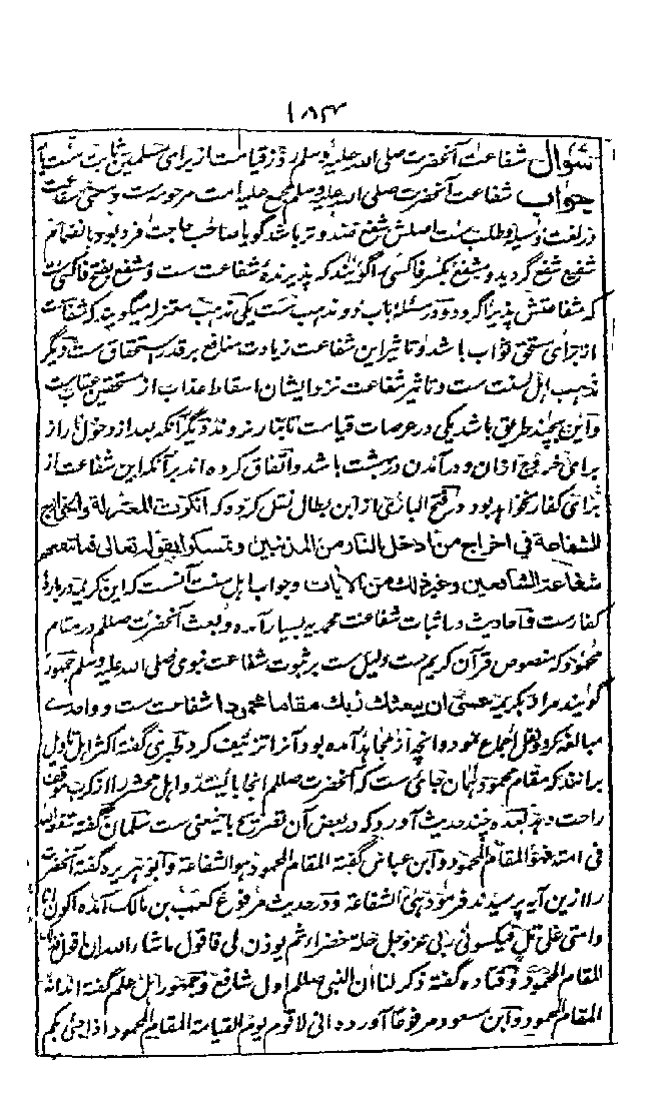 ۱۸۳
سوال شفاعت آنحضرت صلی الله علیه وسلم روز قیامت از برای مسلمین ثابت ست یا
جواب شفاعت آنحضرت صلی الله علیه وسلم امت مرحومه ست و معنی شفاعت
در لغت وسیله و طلب ست اصلش شفع ضد وتر باشد گویا صاحب حاجت فرد بود بانضمام
شفیع شفع گردید و مشفع بکسر فا کسی را گویند که پذیرندهٔ شفاعت ست و مشفع بفتح فا کسی ست
که شفاعتش پذیرا گردد و در مسئلهٔ باب دو مذهب ست یکی مذهب معتزله میگویند که شفاعت
از برای مستحق ثواب باشد و تاثیر این شفاعت زیادت منافع بر قدر استحقاق ست دیگر
مذهب اهل سنت ست و تاثیر شفاعت نزد ایشان اسقاط عذاب از مستحقین عذاب ست
و این بچند طریق باشد یکی در عرصات قیامت تا بنار نروند دیگر آنکه بعد از دخول نار از
برای خروج ازان و درآمدن در بهشت باشد و اتفاق کرده اند بر آنکه این شفاعت از
برای کفار نخواهد بود در فتح الباری از ابن بطال نقل کرده که انکرت المعتزلة والخوارج
الشفاعة فی اخراج من ادخل النار من المذنبین وتمسکوا بقوله تعالی فما تنفعهم
شفاعة الشافعین وغیر ذلک من الآیات و جواب اهل سنت آنست که این کریمه در بارهٔ
کفارست و احادیث در اثبات شفاعت محمدیه بسیار آمده و بعث آنحضرت صلعم در مقام
محمود که منصوص قرآن کریم ست دلیل ست بر ثبوت شفاعت نبوی صلی الله علیه وسلم جمهور
گویند مراد بکریمهٔ عسی ان یبعثک ربک مقاما محمودا شفاعت ست و واحدی
مبالغه کرد و نقل اجماع نمود و آنچه از مجاهد آمده بود آنرا تزئیف کرد طبری گفته اکثر اهل تاویل
برانند که مقام محمود همان جائی ست که آنحضرت صلعم آنجا بایستد و اهل محشر را از کرب موقف
راحت دهد بعده چند حدیث آورده که در بعض آن تصریح باینمعنی ست سلمان گفته
فی امته فهو المقام المحمود و ابن عباس گفته المقام المحمود هو الشفاعة و ابو هریره گفته آنحضرت
را ازین آیه پرسیدند فرمود هی الشفاعة و در حدیث مرفوع کعب بن مالک آمده اکون انا
وامتی علی تل فیکسونی ربی عز وجل حلة خضراء ثم یوذن لی فاقول ما شاء الله ان اقول
المقام المحمود و قتاده گفته ذکر لنا ان النبی صلعم اول شافع و جمهور اهل علم گفته اند انه
المقام المحمود و ابن مسعود مرفوعا آورده انی لاقوم یوم القیامة المقام المحمود اذا جیٔ بکم